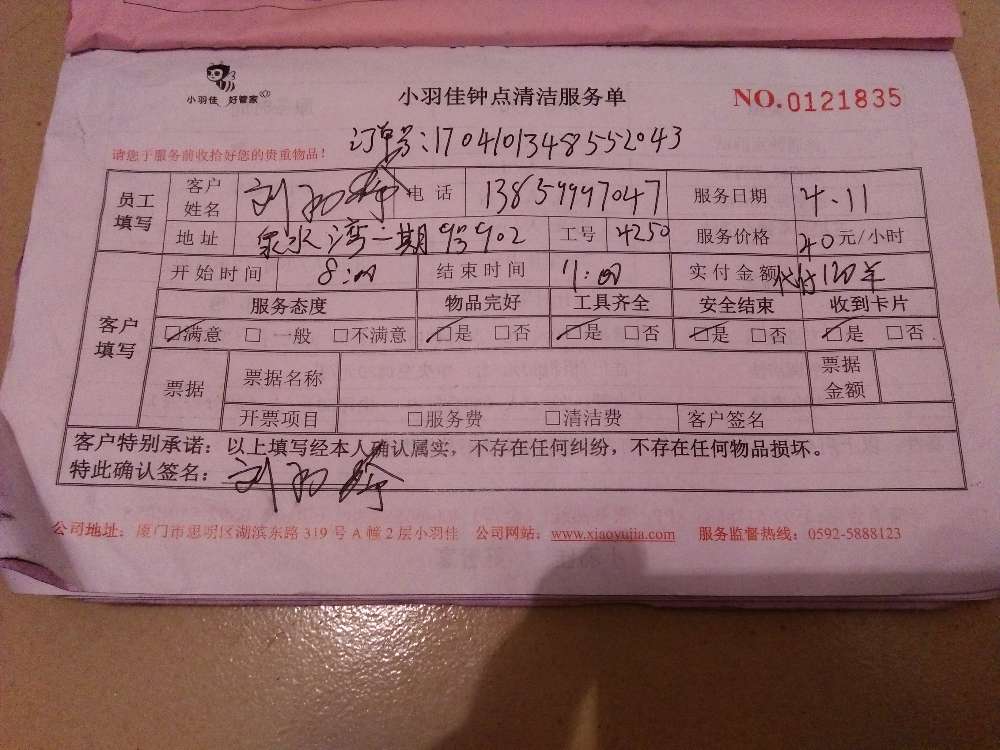 小羽佳 好管家
小羽佳钟点清洁服务单
NO.0121835
订单号:1704101348552043
请您于服务前收拾好您的贵重物品!
员工填写 客户姓名 刘 电话 13859997047 服务日期 4.11
地址 泉水湾二期9号902 工号 4250 服务价格 40元/小时
客户填写 开始时间 8:00 结束时间 11:00 实付金额 代付120羊
服务态度 物品完好 工具齐全 安全结束 收到卡片
☑满意 □一般 □不满意 ☑是 □否 ☑是 □否 ☑是 □否 ☑是 □否
票据 票据名称 票据金额
开票项目 □服务费 □清洁费 客户签名
客户特别承诺:以上填写经本人确认属实,不存在任何纠纷,不存在任何物品损坏。
特此确认签名:刘
公司地址:厦门市思明区湖滨东路319号A幢2层小羽佳 公司网站:www.xiaoyujia.com 服务监督热线:0592-5888123